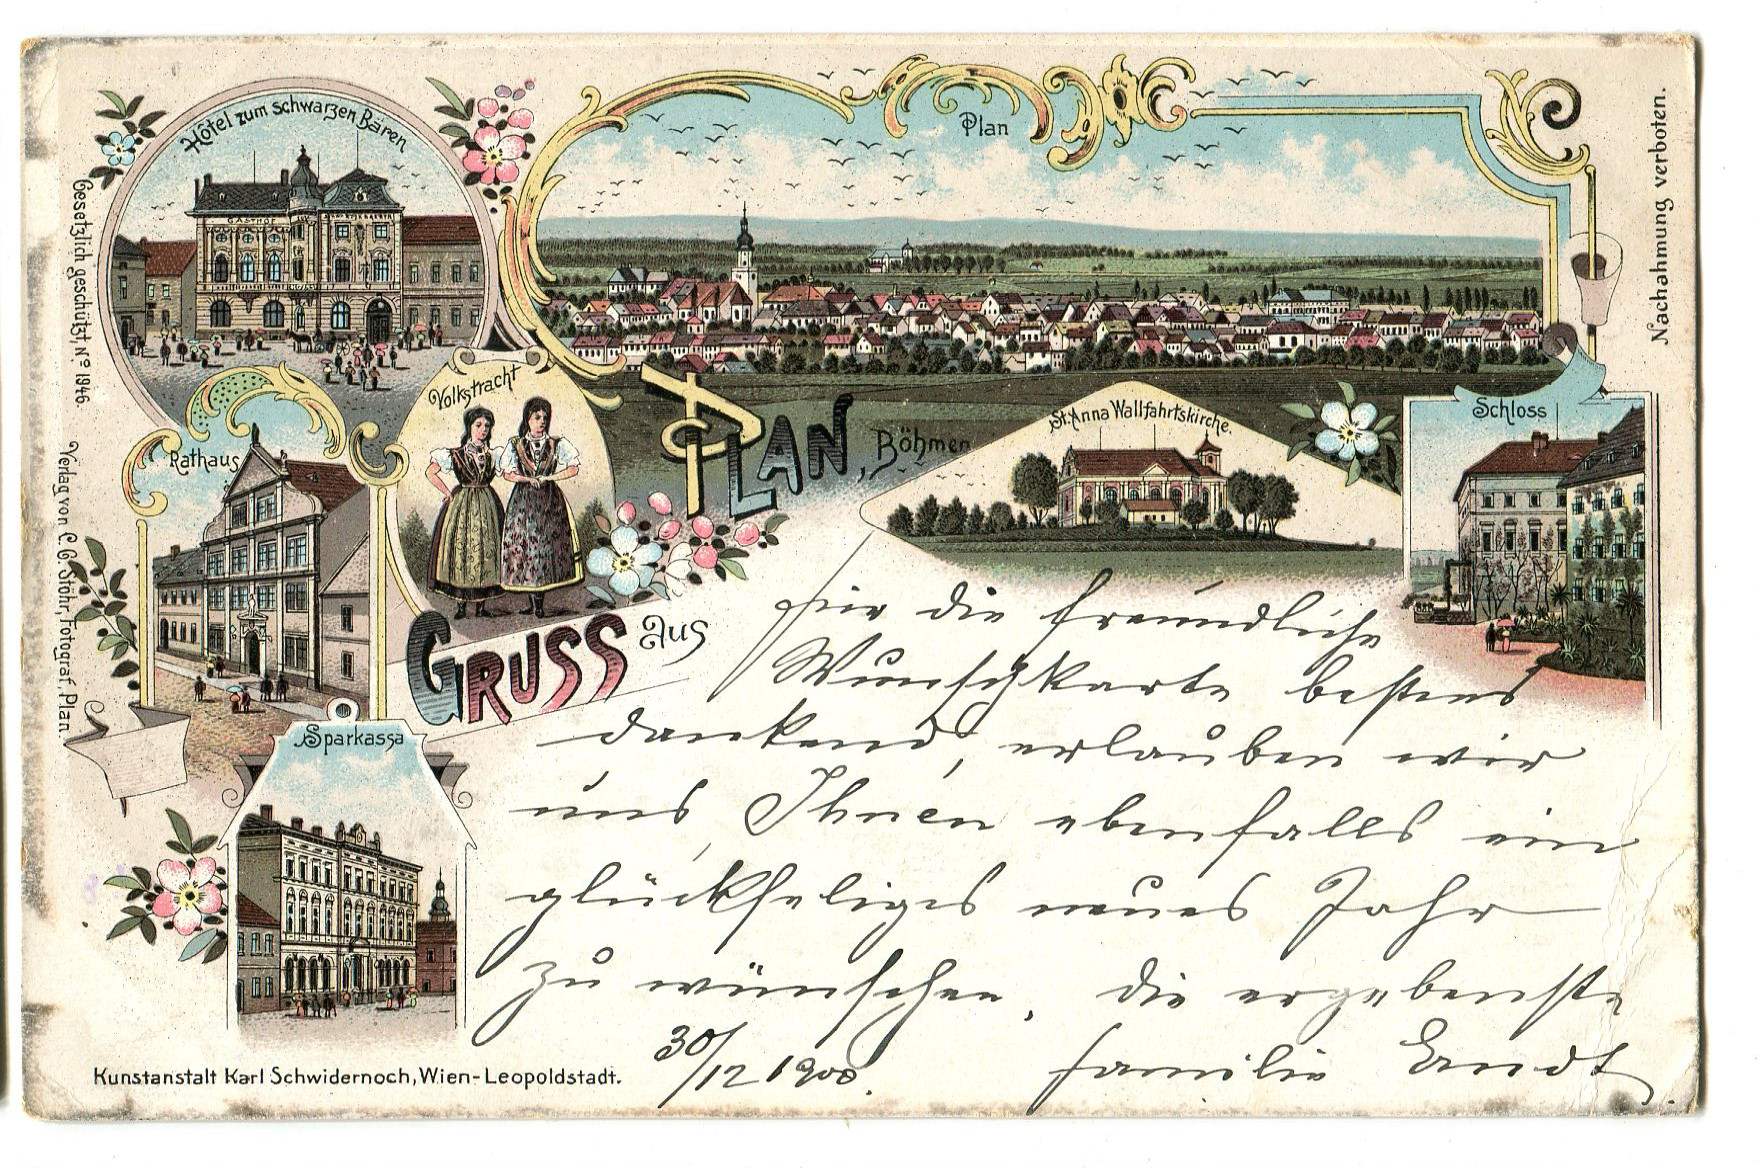 Hôtel zum schwarzen Bären
GASTHOF
Plan
Nachahmung verboten.
Gesetzlich geschützt, Nº 1946.
Verlag von C. G. Stöhr, Fotograf, Plan.
Volkstracht
Rathaus
Schloss
St. Anna Wallfahrtskirche.
GRUSS aus
PLAN, Böhmen
Sparkassa
Für die freundliche
Wunschkarte bestens
dankend, erlauben wir
uns, Ihnen ebenfalls ein
glückseliges neues Jahr
zu wünschen, die ergebenste
30/12 1900. Familie
Kunstanstalt Karl Schwidernoch, Wien-Leopoldstadt.